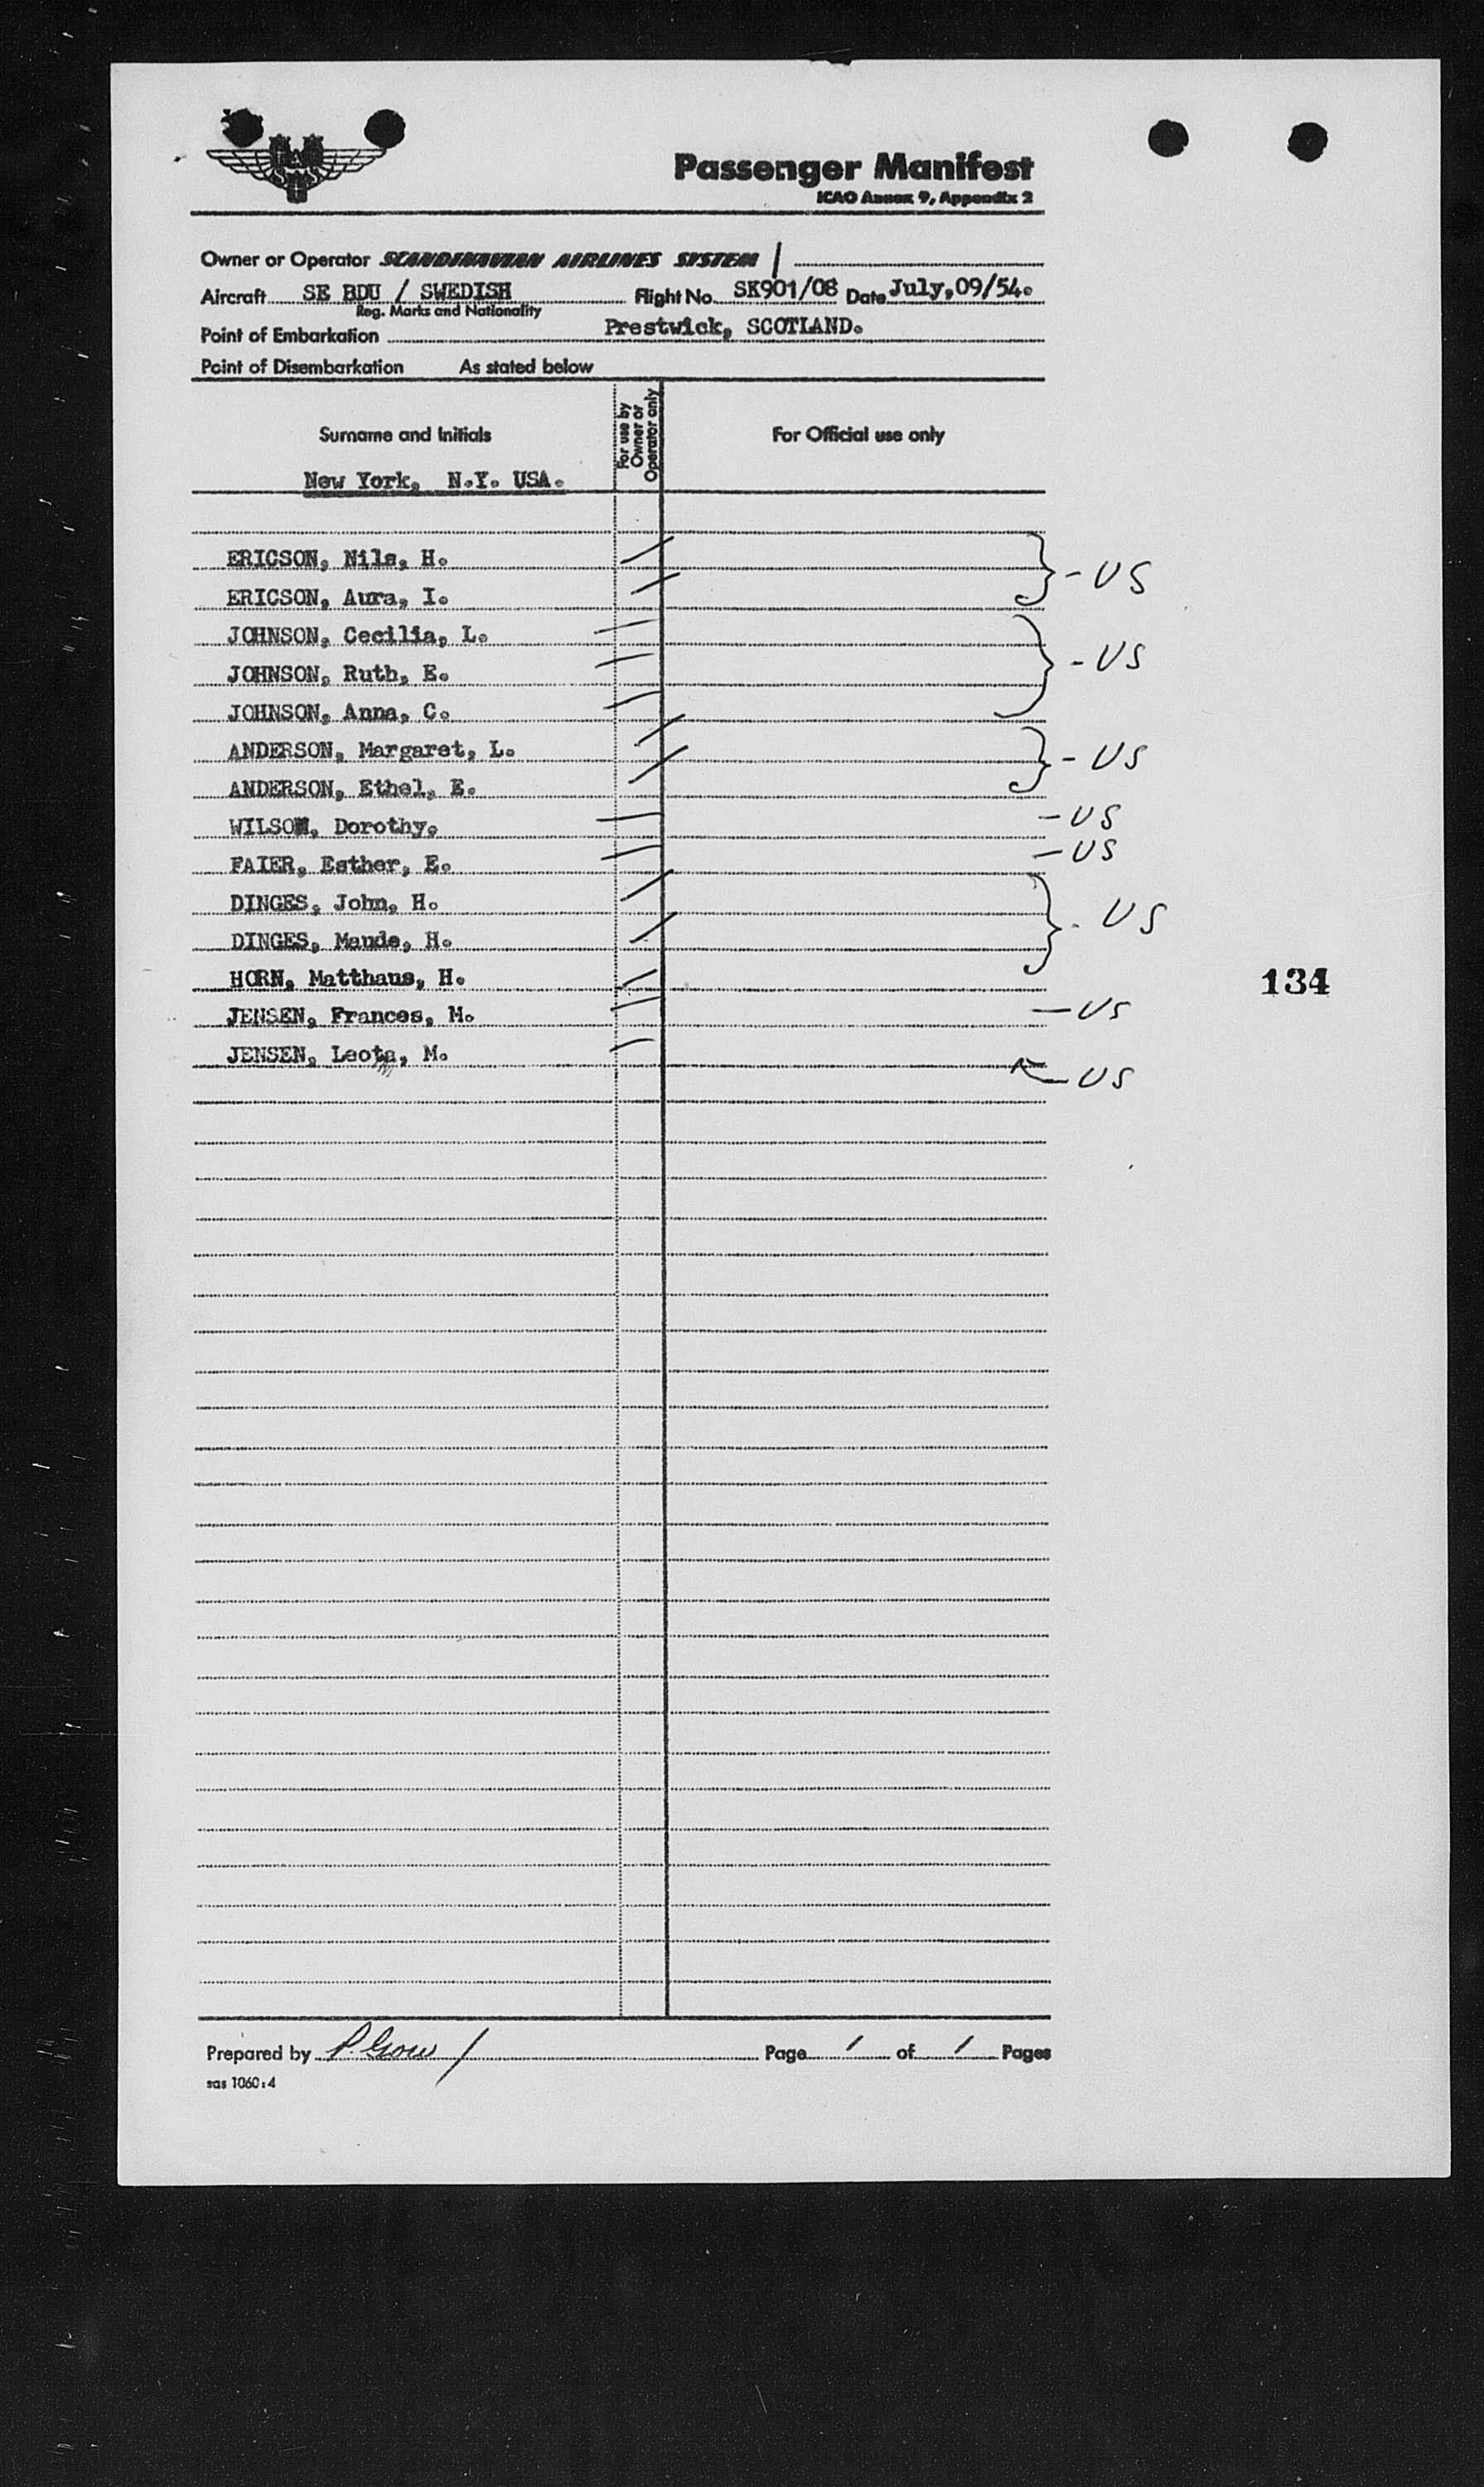 Passenger Manifest
ICAO Annex 9, Appendix 2
Owner or Operator SCANDINAVIAN AIRLINES SYSTEM /
Aircraft SE BDU / SWEDISH Flight No. SK901/08 Date July,09/54.
Reg. Marks and Nationality
Point of Embarkation Prestwick, SCOTLAND.
Point of Disembarkation As stated below
Surname and Initials
For use by Owner or Operator only
For Official use only
New York, N.Y. USA.
ERICSON, Nils, H.
- US
ERICSON, Aura, I.
JOHNSON, Cecilia, L.
JOHNSON, Ruth, E. - US
JOHNSON, Anna, C.
ANDERSON, Margaret, L. - US
ANDERSON, Ethel, E.
WILSON, Dorothy. - US
FAIER, Esther, E. - US
DINGES, John, H. - US
DINGES, Maude, H.
HORN, Matthaus, H. 134
JENSEN, Frances, M. - US
JENSEN, Leota, M. - US
Prepared by P. Gow / Page 1 of 1 Pages
sas 1060:4